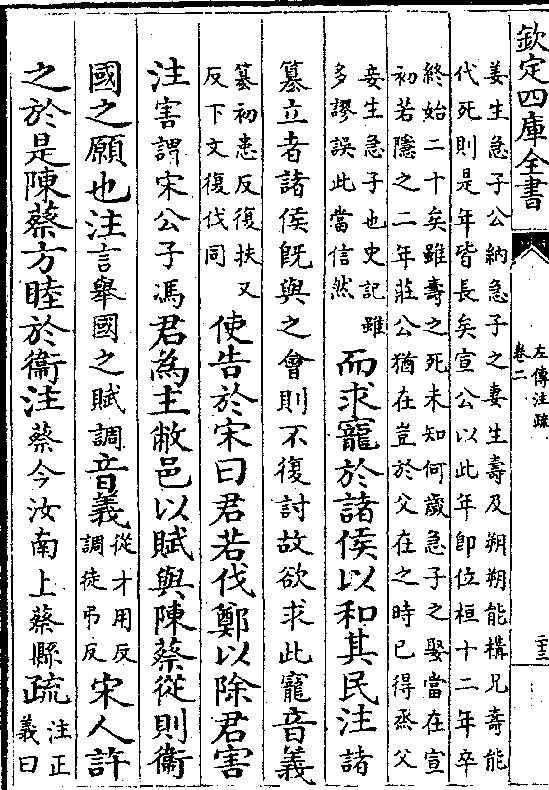 欽定四庫全書
左傳注疏
卷二
二十三
姜生急子公納急子之妻生壽及朔朔能構兄壽能
代死則是年皆長矣宣公以此年即位桓十二年卒
終始二十矣雖壽之死未知何歲急子之娶當在宣
初若隱之二年莊公猶在豈於父在之時已得烝父
妾生急子也史記雖
多謬誤此當信然
而求寵於諸侯以和其民注諸
篡立者諸侯既與之會則不復討故欲求此寵音義
篡初患反復扶又
反下文復伐同
使告於宋曰君若伐鄭以除君害
注害謂宋公子馮君為主敝邑以賦與陳蔡從則衞
國之願也注言舉國之賦調音義
從才用反
調徒弔反
宋人許
之於是陳蔡方睦於衞注蔡今汝南上蔡縣疏
注正
義曰